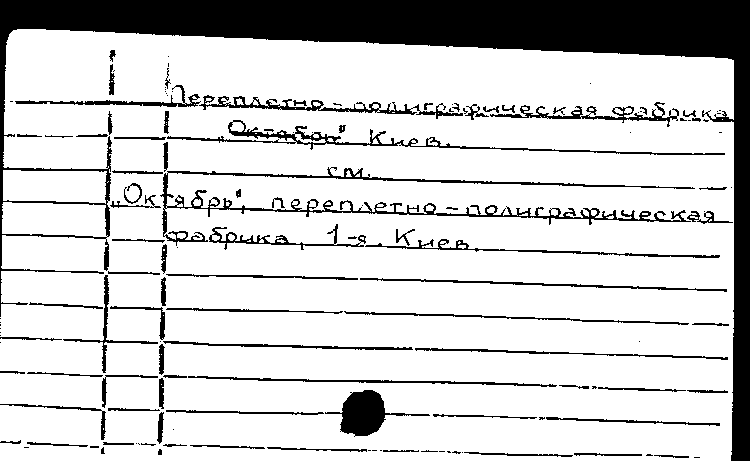 Переплетно-полиграфическая фабрика
„Октябрь" Киев.
см.
„Октябрь", переплетно-полиграфическая
фабрика, 1-я. Киев.